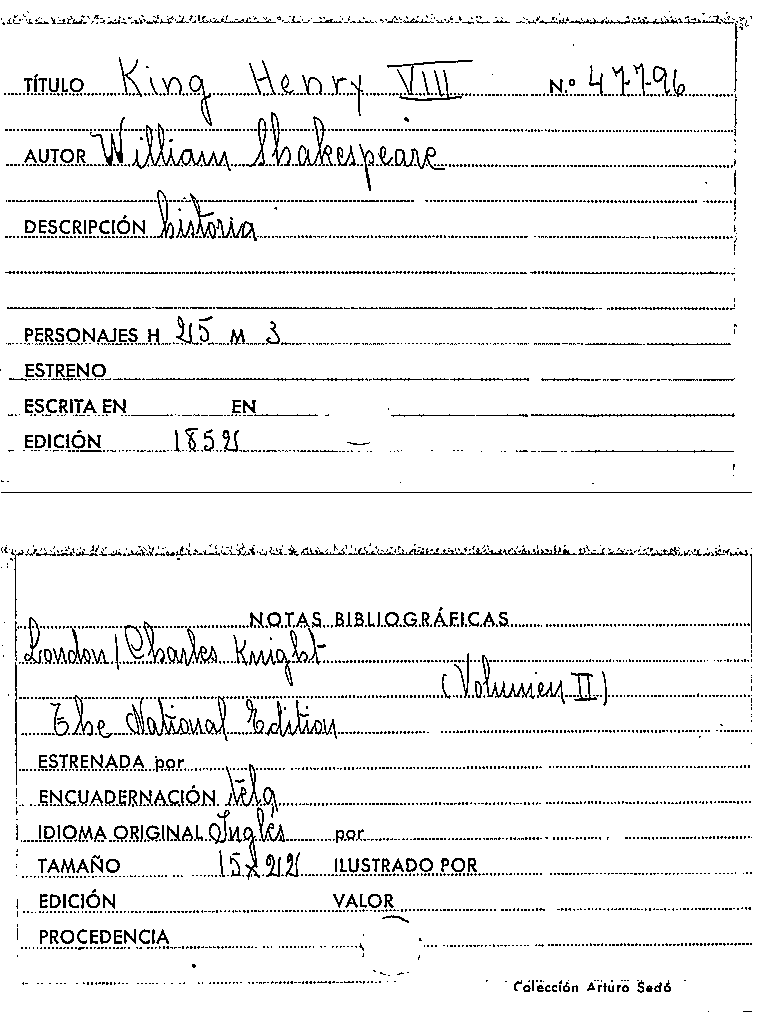 TÍTULO King Henry VIII N.º 47796
AUTOR William Shakespeare
DESCRIPCIÓN historia
PERSONAJES H 25 M 3
ESTRENO
ESCRITA EN EN
EDICIÓN 1852 —
NOTAS BIBLIOGRÁFICAS
London / Charles Knight
(Volumen II)
The National Edition
ESTRENADA por
ENCUADERNACIÓN tela
IDIOMA ORIGINAL Inglés por
TAMAÑO 15x22 ILUSTRADO POR
EDICIÓN VALOR
PROCEDENCIA
Colección Arturo Sedó